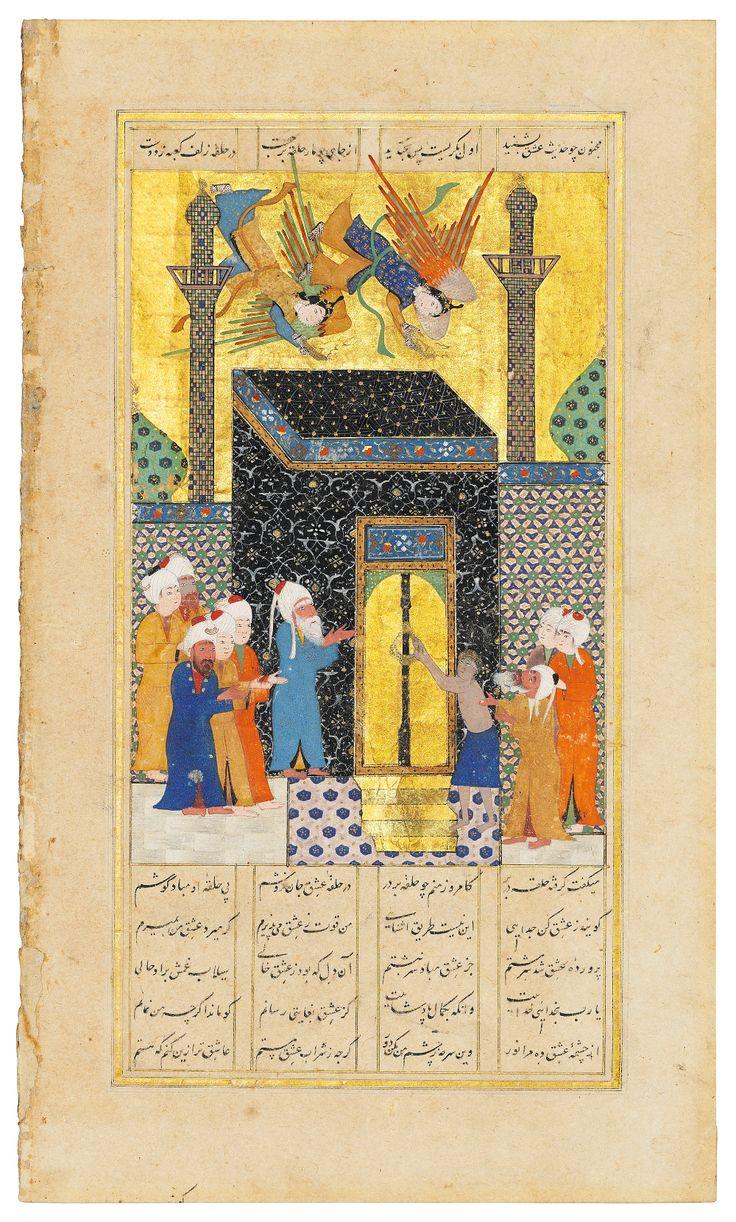 مجنون چو حدیث عشق بشنید اول بگریست پس بخندید از جای چو مار حلقه برجست در حلقه زلف کعبه زد دست
میگفت گرفته حلقه در بر کامروز منم چو حلقه بر در در حلقه عشق جان فروشم بی حلقه او مباد گوشم
گویند ز عشق کن جدایی این نیست طریق آشنایی من قوت ز عشق می پذیرم گر میرد عشق من بمیرم
پرورده عشق شد سرشتم جز عشق مباد سرنبشتم آن دل که بود ز عشق خالی سیلاب غمش براد حالی
یارب بخدایی خداییت وانگه بکمال پادشاییت کز عشق بغایتی رسانم کو ماند اگر چه من نمانم
از چشمه عشق ده مرا نور وین سرمه ز چشم من مکن دور گر چه ز شراب عشق مستم عاشق تر ازین کنم که هستم